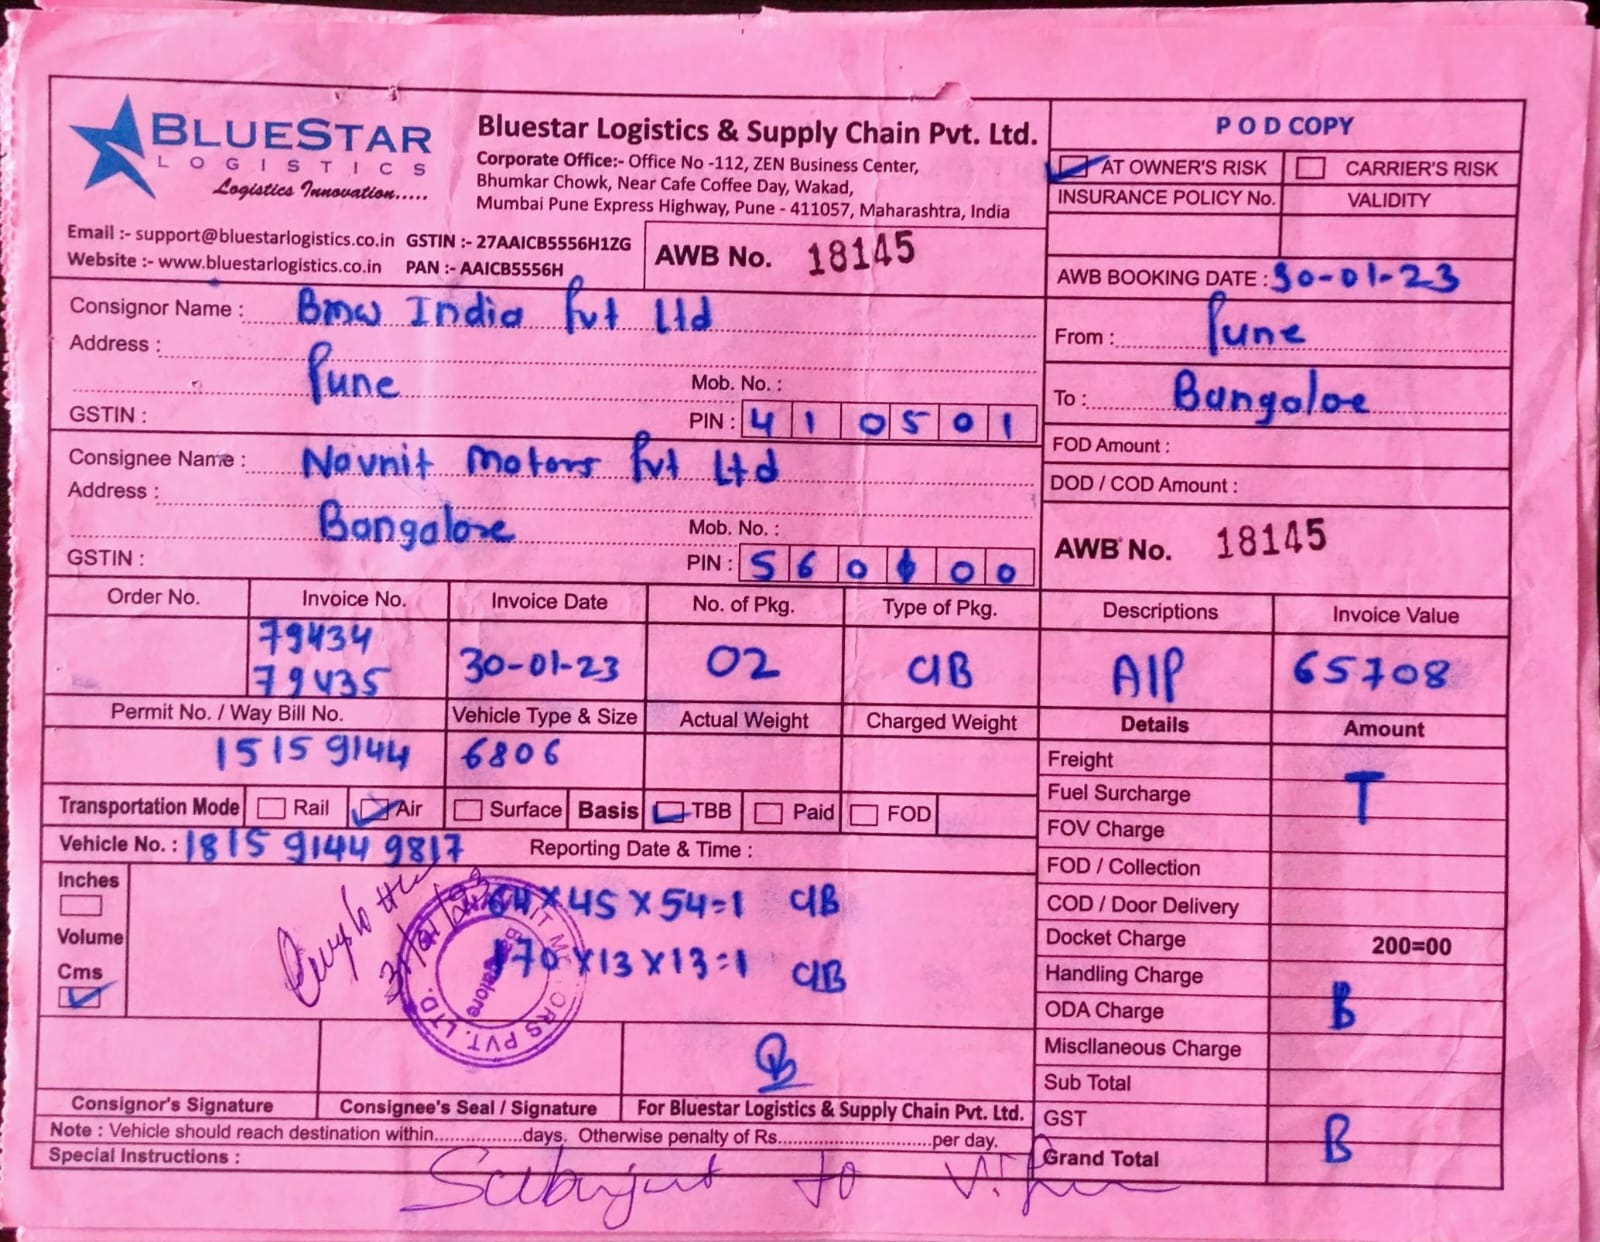 BLUESTAR
LOGISTICS
Logistics Innovation.....
Bluestar Logistics & Supply Chain Pvt. Ltd.
Corporate Office:- Office No -112, ZEN Business Center,
Bhumkar Chowk, Near Cafe Coffee Day, Wakad,
Mumbai Pune Express Highway, Pune - 411057, Maharashtra, India
Email :- support@bluestarlogistics.co.in GSTIN :- 27AAICB5556H1ZG
Website :- www.bluestarlogistics.co.in PAN :- AAICB5556H
AWB No. 18145
P O D COPY
AT OWNER'S RISK CARRIER'S RISK
INSURANCE POLICY No. VALIDITY
AWB BOOKING DATE : 30-01-23
Consignor Name : Bmw India Pvt Ltd
Address :
Pune Mob. No. :
GSTIN : PIN : 4 1 0 5 0 1
From : Pune
To : Bangaloe
FOD Amount :
DOD / COD Amount :
AWB No. 18145
Consignee Name : Navnit Motors Pvt Ltd
Address :
Bangalore Mob. No. :
GSTIN : PIN : 5 6 0 0 0 0
Order No. Invoice No. Invoice Date No. of Pkg. Type of Pkg. Descriptions Invoice Value
79434
79435 30-01-23 02 CIB AIP 65708
Permit No. / Way Bill No. Vehicle Type & Size Actual Weight Charged Weight Details Amount
15159144 6806
Freight
Fuel Surcharge T
FOV Charge
FOD / Collection
COD / Door Delivery
Docket Charge 200=00
Handling Charge
ODA Charge B
Miscllaneous Charge
Sub Total
GST B
Grand Total
Transportation Mode Rail Air Surface Basis TBB Paid FOD
Vehicle No. : 1815 9144 9817 Reporting Date & Time :
Inches
Volume
Cms
64×45×54=1 CIB
170×13×13=1 CIB
Bangalore
ORS PVT. LTD.
Consignor's Signature Consignee's Seal / Signature For Bluestar Logistics & Supply Chain Pvt. Ltd.
Note : Vehicle should reach destination within.................days. Otherwise penalty of Rs.............................per day.
Special Instructions :
to